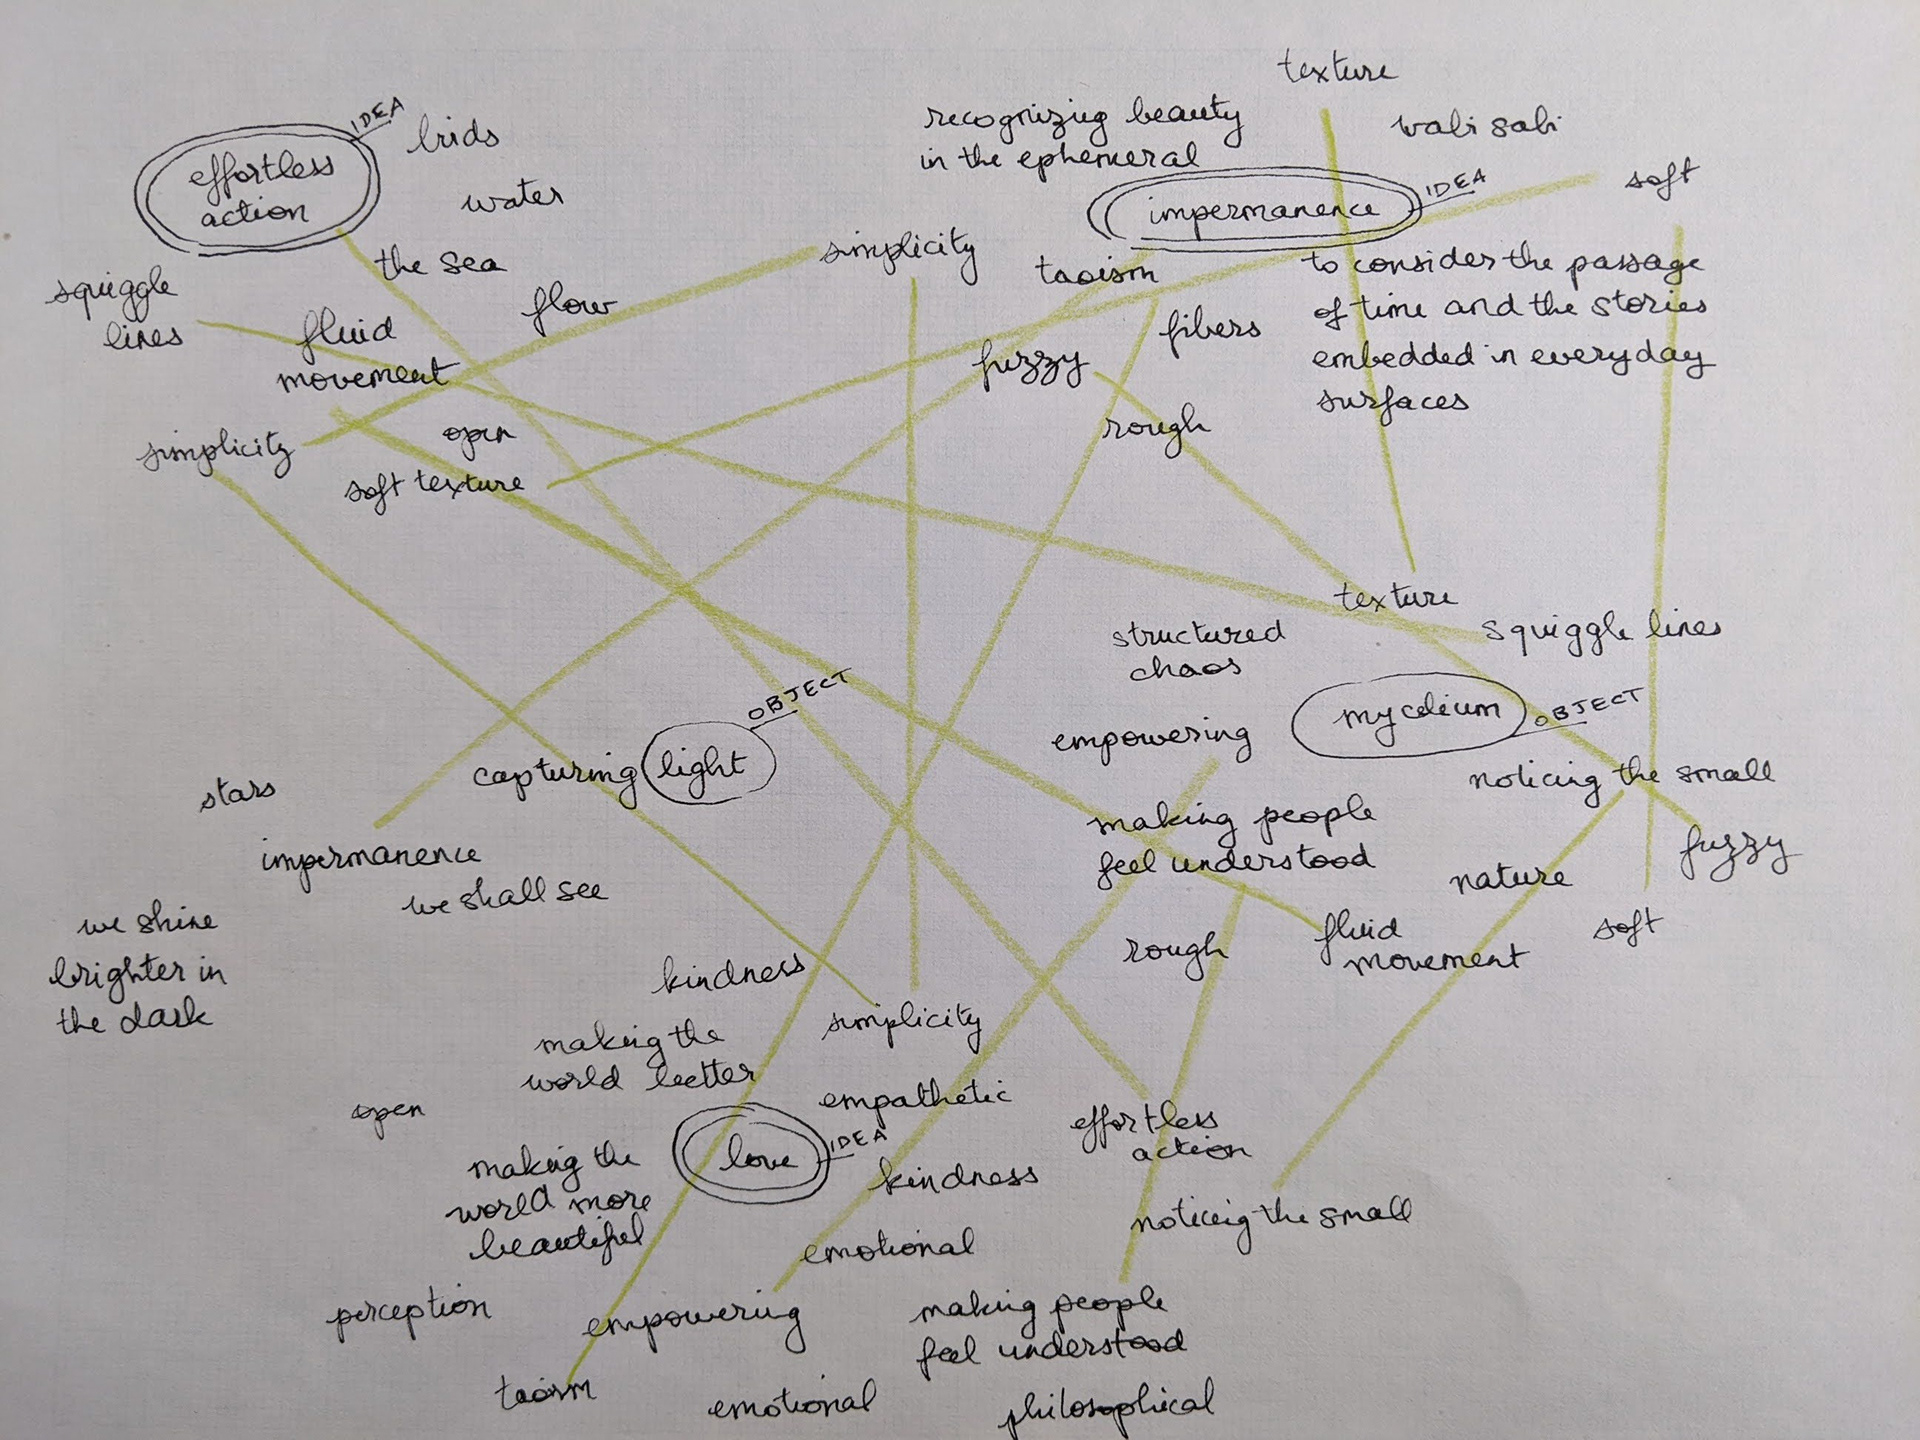 effortless
action
IDEA
birds
water
the sea
flow
squiggle
lines
fluid
movement
simplicity
open
soft texture
texture
recognizing beauty
in the ephemeral
wabi sabi
impermanence
IDEA
soft
simplicity
taoism
to consider the passage
of time and the stories
embedded in everyday
surfaces
fibers
fuzzy
rough
texture
squiggle lines
structured
chaos
mycelium
OBJECT
empowering
noticing the small
making people
feel understood
nature
fuzzy
soft
rough
fluid
movement
capturing light
OBJECT
stars
impermanence
we shall see
we shine
brighter in
the dark
open
kindness
simplicity
making the
world better
empathetic
love
IDEA
kindness
effortless
action
making the
world more
beautiful
emotional
noticing the small
perception
empowering
making people
feel understood
taoism
emotional
philosophical